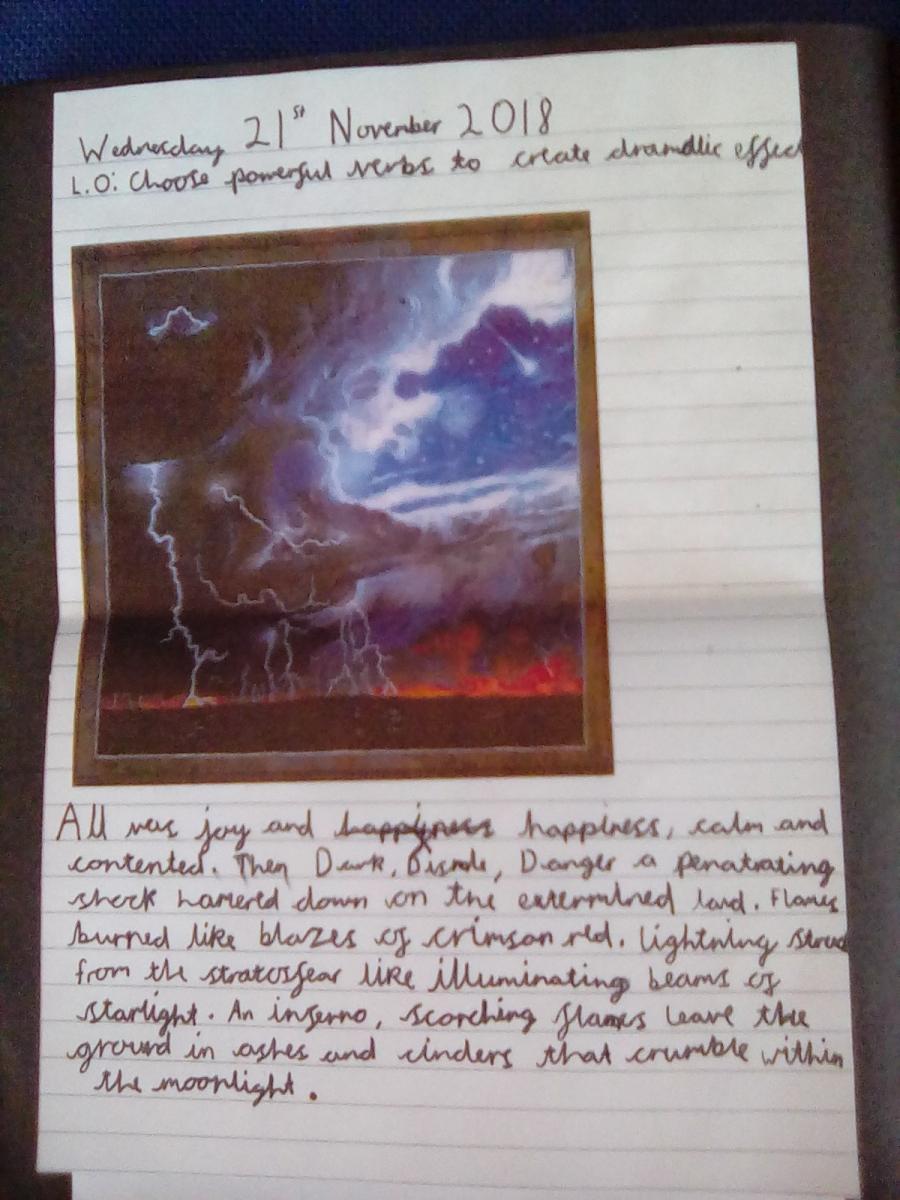 Wednesday 21st November 2018
L.O: Choose powerful verbs to create dramatic effect
All was joy and happiness, calm and
contented. Then Dark, Dismle, Danger a penatrating
shock hamered down on the extermined land. Flames
burned like blazes of crimson red. lightning struck
from the stratosfear like illuminating beams of
starlight. An inferno, scorching flames leave the
ground in ashes and cinders that crumble within
the moonlight.